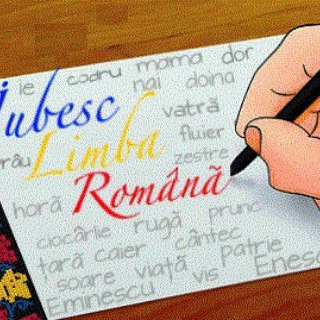 ie codru mama dor
nai doina
Iubesc
vatră
Limba
fluier
râu
zestre
Română
horă
prunc
ciocârlie rugă
cântec
țară caier
patrie
soare viață vis
Enesc
Eminescu